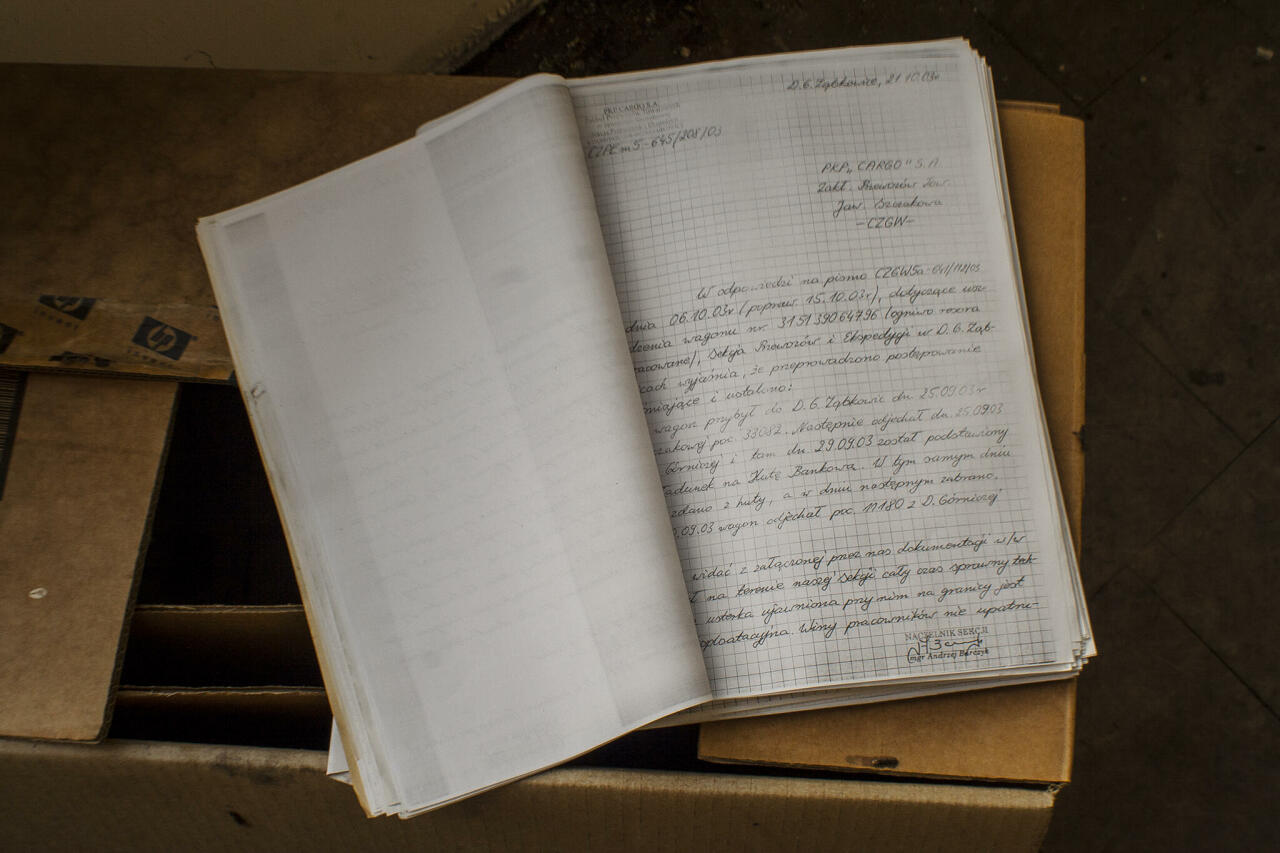 D.G. Ząbkowice, 21.10.03r
PKP CARGO S.A.
CZPEm5-645/208/03
PKP „CARGO" S.A.
Zakł. Przewozów Tow.
Jaw. Szczakowa
-CZGW-
W odpowiedzi na pismo CZGW5a-641/112/03
dnia 06.10.03r (popraw. 15.10.03r), dotyczące usz-
dzenia wagonu nr. 315139064796 (ogniwo resora
racowane), Sekcja Przewozów i Ekspedycji w D.G. Ząb-
cach wyjaśnia, że przeprowadzono postępowanie
niające i ustalono:
wagon przybył do D.G. Ząbkowic dn 25.09.03r
zakowej poc. 33082. Następnie odjechał dn. 25.09.03
Górniczej i tam dn. 29.09.03 został podstawiony
ładunek na Hutę Bankowa. W tym samym dniu
zdano z huty, a w dniu następnym zabrano.
.09.03 wagon odjechał poc. 11180 z D. Górniczej
widać z załączonej przez nas dokumentacji w/w
ł na terenie naszej sekcji cały czas sprawny tak-
usterka ujawniona przy nim na granicy jest
sploatacyjna. Winy pracowników nie upatru-
NACZELNIK SEKCJI
mgr Andrzej Barczyk
hp
invent
hp
invent